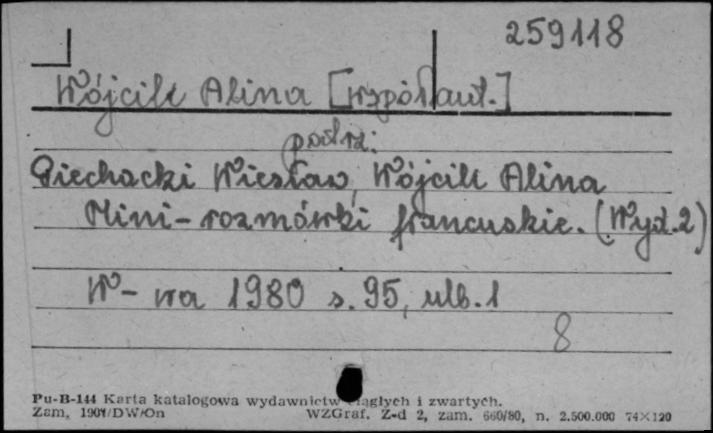 259118
Wójcik Alina [współaut.]
patrz:
Piechocki Wiesław, Wójcik Alina
Mini-rozmówki francuskie. (Wyd. 2)
W-wa 1980 s. 95, nlb. 1
8
Pu-B-144 Karta katalogowa wydawnictw ciągłych i zwartych.
Zam. DW/On WZGraf. Z-d 2, zam. 660/80, n. 2.500.000 74×120